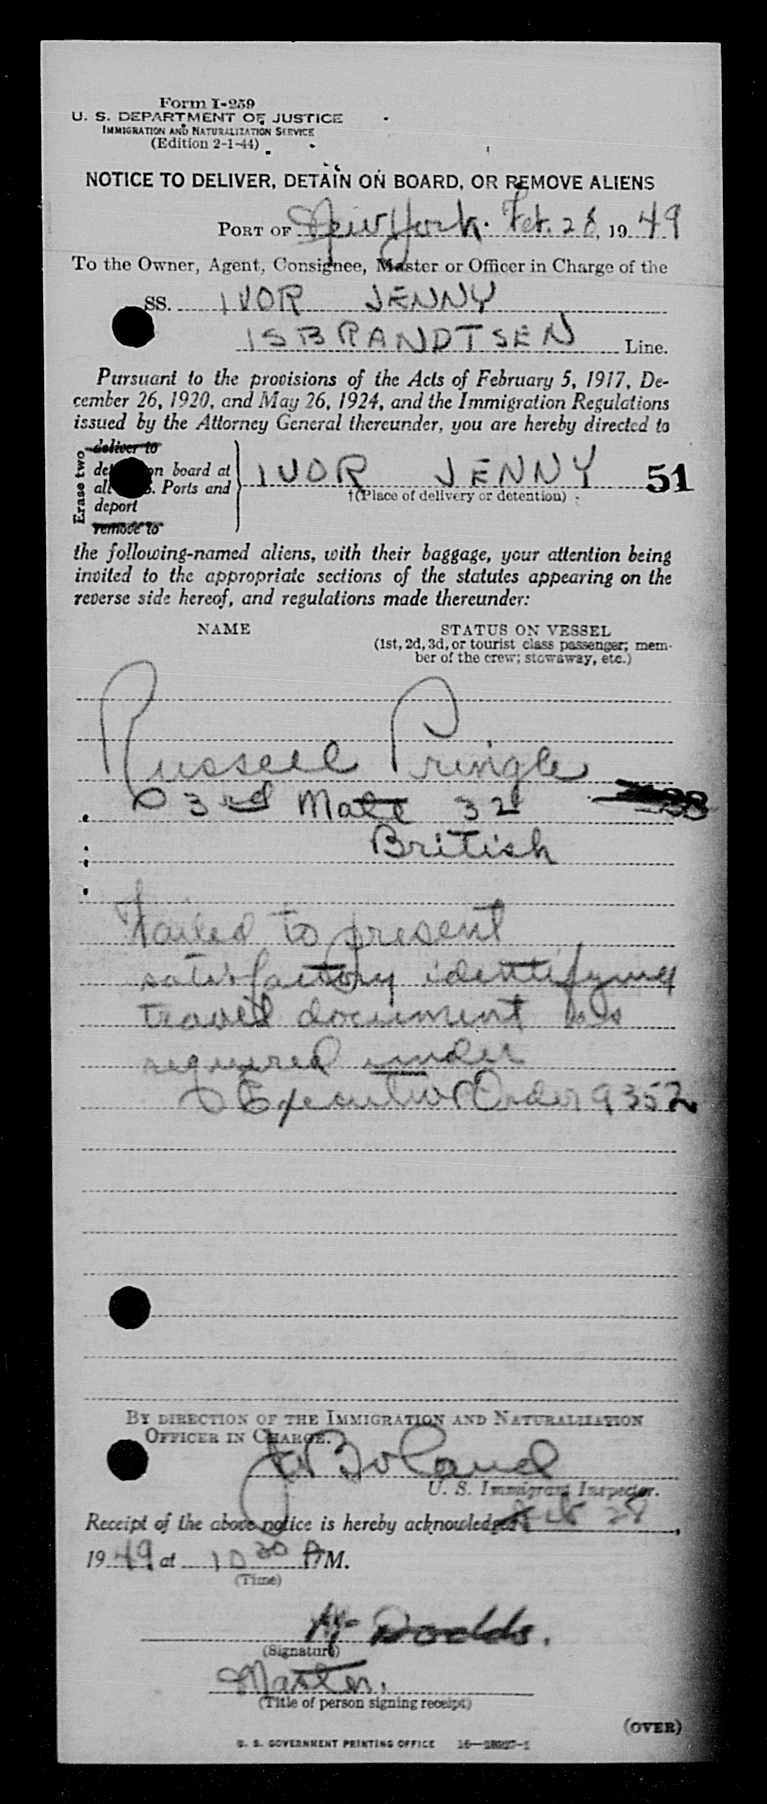 Form I-259
U. S. DEPARTMENT OF JUSTICE
IMMIGRATION AND NATURALIZATION SERVICE
(Edition 2-1-44)
NOTICE TO DELIVER, DETAIN ON BOARD, OR REMOVE ALIENS
PORT OF New York. Feb. 28, 1949
To the Owner, Agent, Consignee, Master or Officer in Charge of the
SS. IVOR JENNY
ISBRANDTSEN Line.
Pursuant to the provisions of the Acts of February 5, 1917, De-
cember 26, 1920, and May 26, 1924, and the Immigration Regulations
issued by the Attorney General thereunder, you are hereby directed to
Erase two
deliver to
on board at
all Ports and
deport
remove to
IVOR JENNY 51
†(Place of delivery or detention)
the following-named aliens, with their baggage, your attention being
invited to the appropriate sections of the statutes appearing on the
reverse side hereof, and regulations made thereunder:
NAME
STATUS ON VESSEL
(1st, 2d, 3d, or tourist class passenger; mem-
ber of the crew; stowaway, etc.)
Russell Pringle
3rd Mate 32
British
Failed to present
satisfactory identifying
travel document as
required under
Executive Order 9352
BY DIRECTION OF THE IMMIGRATION AND NATURALIZATION
OFFICER IN CHARGE.
Boland
U. S. Immigrant Inspector.
Receipt of the above notice is hereby acknowledged Feb 28,
1949 at 10 30 A M.
(Time)
Dodds.
(Signature)
Master.
(Title of person signing receipt)
(OVER)
U. S. GOVERNMENT PRINTING OFFICE